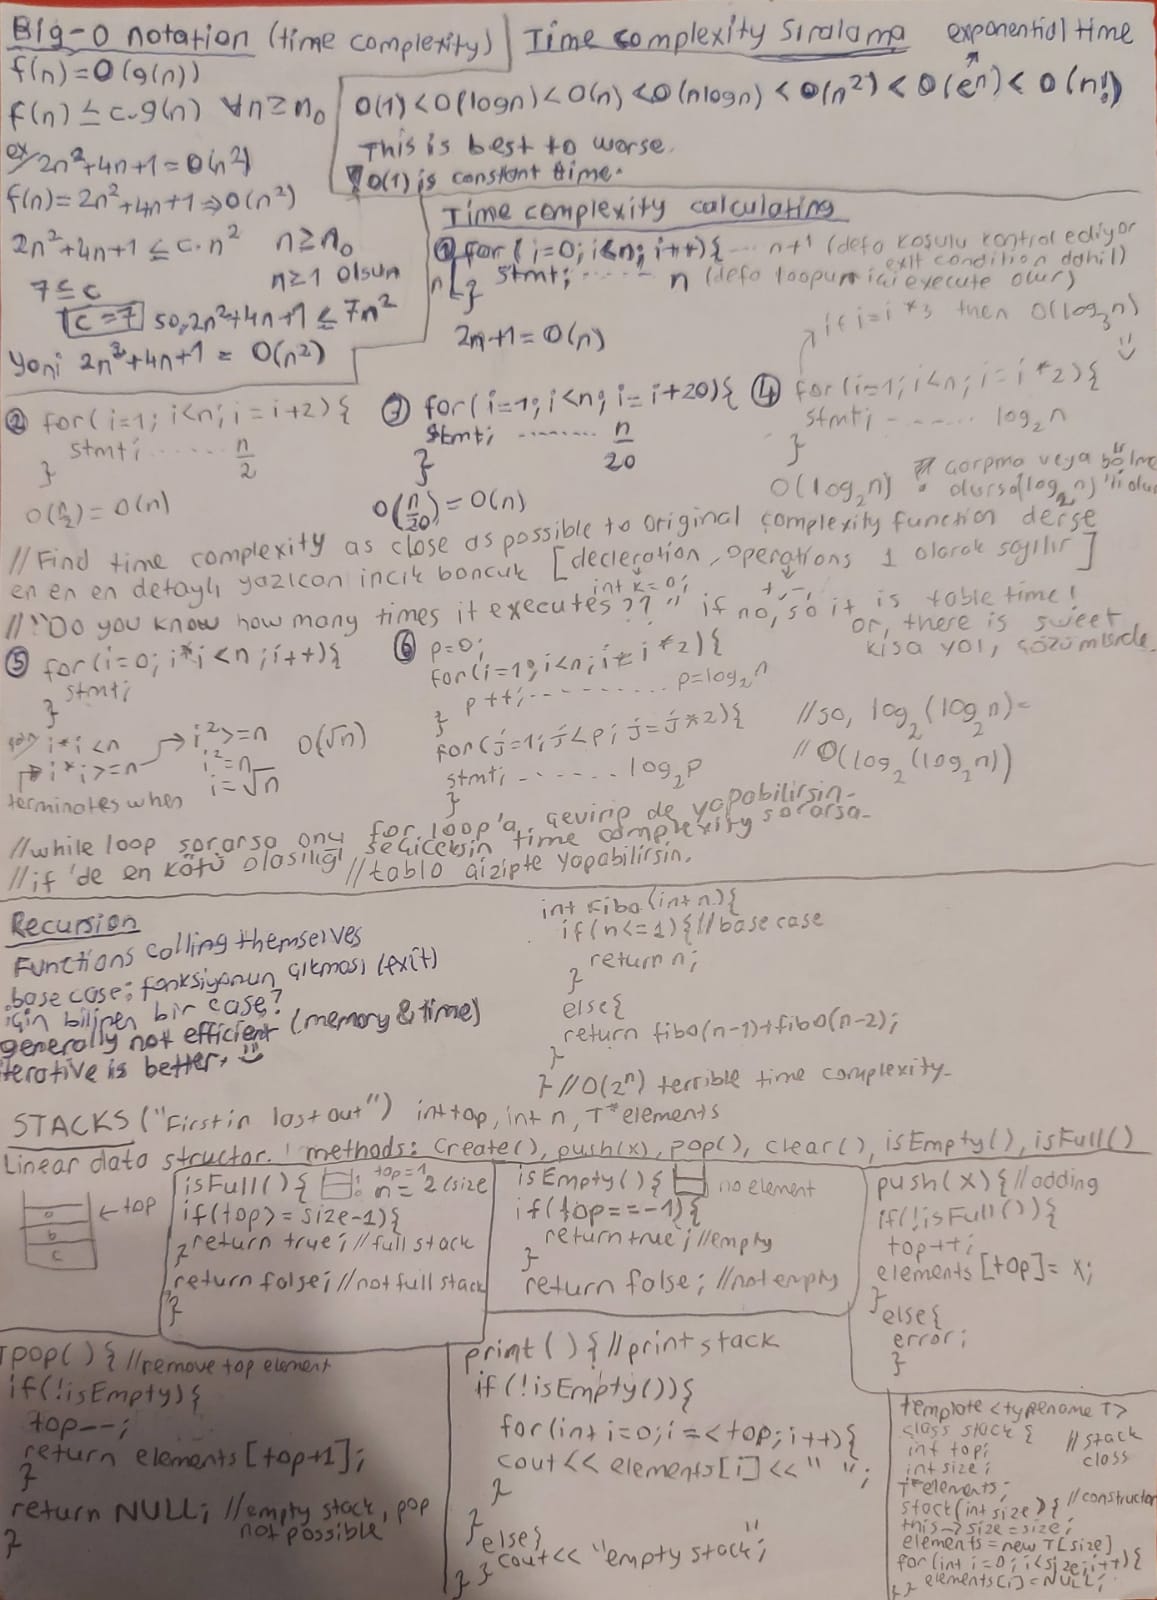 Big-O notation (time complexity)
f(n)=O(g(n))
f(n) ≤ c.g(n) ∀n≥n₀
ex/ 2n²+4n+1=O(n²)
f(n)=2n²+4n+1⇒O(n²)
2n²+4n+1 ≤ c.n² n≥n₀
n≥1 olsun
7≤c
c=7 so, 2n²+4n+1 ≤ 7n²
Yani 2n²+4n+1 = O(n²)
Time complexity Sıralama exponential time
O(1)<O(logn)<O(n)<O(nlogn)<O(n²)<O(eⁿ)<O(n!)
This is best to worse.
O(1) is constant time.
Time complexity calculating
① for (i=0; i<n; i++){ ... n+1 (defa koşulu kontrol ediyor
exit condition dahil)
n stmt; ....... n (defa loopun içi execute olur)
}
2n+1=O(n)
if i=i*3 then O(log₃n)
② for(i=1; i<n; i=i+2){
stmt; ...... n/2
}
O(n/2)=O(n)
③ for(i=1; i<n; i=i+20){
stmt; ........ n/20
}
O(n/20)=O(n)
④ for(i=1; i<n; i=i*2){
stmt; ...... log₂n
}
O(log₂n)
çarpma veya bölme
olursa(log₂n)
//Find time complexity as close as possible to original complexity function derse
en en en detaylı yazıcan incik boncuk [decleration, operations 1 olarak sayılır]
int x=0; +,-,
//"Do you know how many times it executes??" if no, so it is table time!
or, there is sweet
kısa yol, çözümlerde.
⑤ for(i=0; i*i<n; i++){
stmt;
}
i*i<n → i²>=n O(√n)
i*i>=n i²=n
i=√n
terminates when
⑥ p=0;
for(i=1; i<n; i=i*2){
p++; ........ p=log₂n
}
for(j=1; j<p; j=j*2){
stmt; ...... log₂p
}
//so, log₂(log₂n)=
//O(log₂(log₂n))
//while loop sorarsa onu for loop'a çevirip de yapabilirsin.
//if 'de en kötü olasılığı seçiceksin time complexity sorarsa.
//tablo çizipte yapabilirsin.
Recursion
Functions calling themselves
base case: fonksiyonun çıkması (exit)
için bilinen bir case?
generally not efficient (memory & time)
iterative is better.
int Fibo(int n){
if(n<=1){//base case
return n;
}
else{
return fibo(n-1)+fibo(n-2);
}
} //O(2ⁿ) terrible time complexity.
STACKS ("First in last out") int top, int n, T* elements
Linear data structor. ! methods: create(), push(x), pop(), clear(), isEmpty(), isFull()
a ← top
b
c
isFull(){ top=1
n=2 (size
if(top>=size-1){
return true; //full stack
}
return false; //not full stack
}
isEmpty(){ no element
if(top==-1){
return true; //empty
}
return false; //not empty
push(x){//adding
if(!isFull()){
top++;
elements[top]=x;
}
else{
error;
}
Tpop(){ //remove top element
if(!isEmpty){
top--;
return elements[top+1];
}
return NULL; //empty stack, pop
not possible
}
print(){ //print stack
if(!isEmpty()){
for(int i=0; i=<top; i++){
cout<< elements[i]<<" ";
}
}
else{
cout<< "empty stack";
} }
template<typename T>
class stack { //stack
class
int top;
int size;
T*elements;
stack(int size){ //constructor
this->size=size;
elements=new T[size]
for(int i=0; i<size; i++){
elements[i]=NULL;
} }